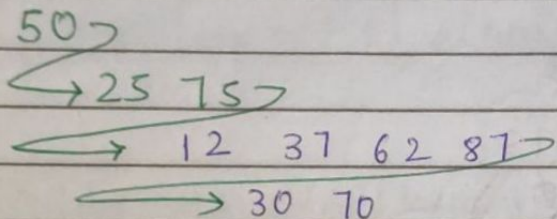 50
25 75
12 37 62 87
30 70